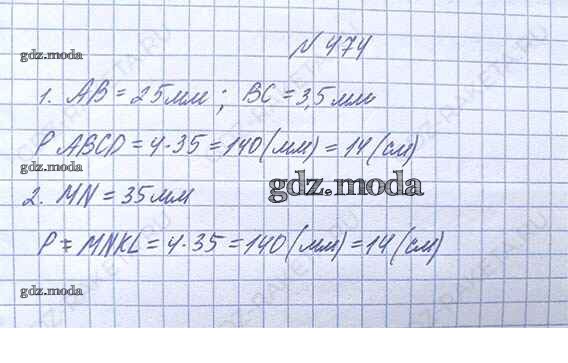 N 474
gdz.moda
1. AB = 25 мм ; BC = 3,5 мм
gdz.moda
P ABCD = 4·35 = 140 (мм) = 14 (см)
gdz.moda
gdz.moda
2. MN = 35 мм
gdz.moda
P = MNKL = 4·35 = 140 (мм) = 14 (см)
gdz.moda
GDZ-RAKETA.RU